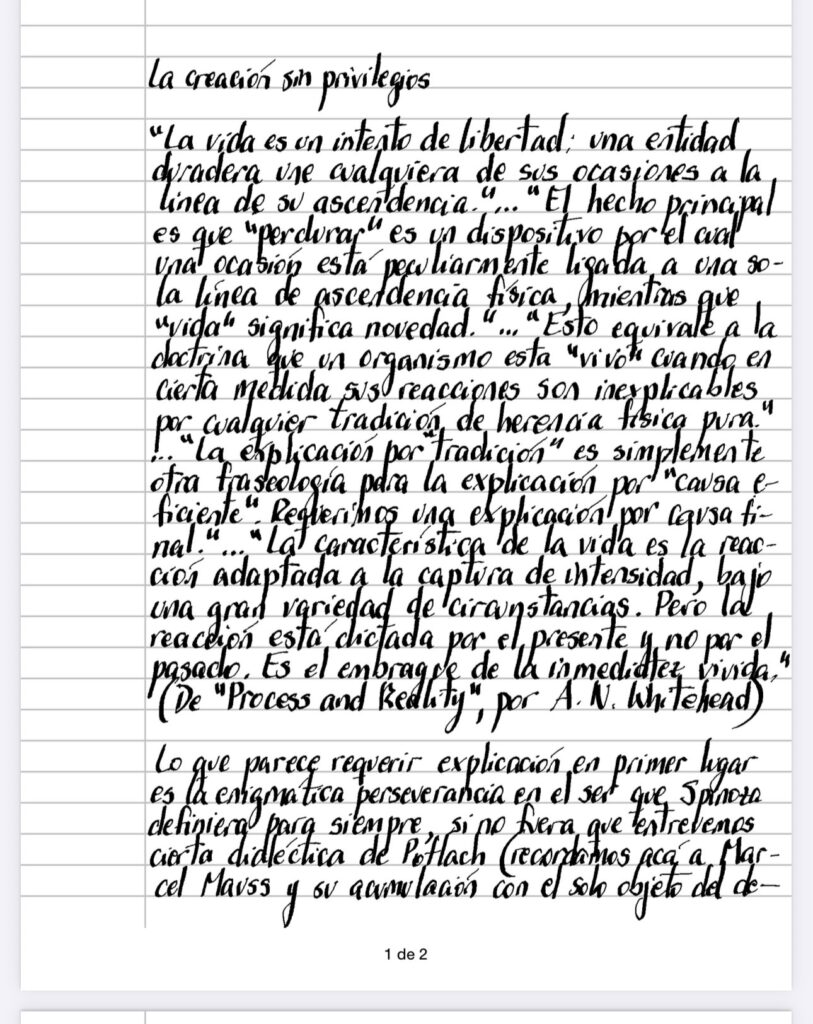 La creación sin privilegios
"La vida es un intento de libertad: una entidad
duradera une cualquiera de sus ocasiones a la
línea de su ascendencia."..."El hecho principal
es que "perdurar" es un dispositivo por el cual
una ocasión está peculiarmente ligada a una so-
la línea de ascendencia física, mientras que
"vida" significa novedad."..."Esto equivale a la
doctrina que un organismo esta "vivo" cuando en
cierta medida sus reacciones son inexplicables
por cualquier tradición de herencia física pura."
..."La explicación por "tradición" es simplemente
otra fraseología para la explicación por "causa e-
ficiente". Requerimos una explicación por causa fi-
nal."..."La característica de la vida es la reac-
ción adaptada a la captura de intensidad, bajo
una gran variedad de circunstancias. Pero la
reacción está dictada por el presente y no por el
pasado. Es el embrague de la inmediatez vivida."
(De "Process and Reality", por A. N. Whitehead)
Lo que parece requerir explicación en primer lugar
es la enigmática perseverancia en el ser que Spinoza
definiera para siempre, si no fuera que entrevemos
cierta dialéctica de Potlach (recordamos acá a Mar-
cel Mauss y su acumulación con el solo objeto del de-
1 de 2